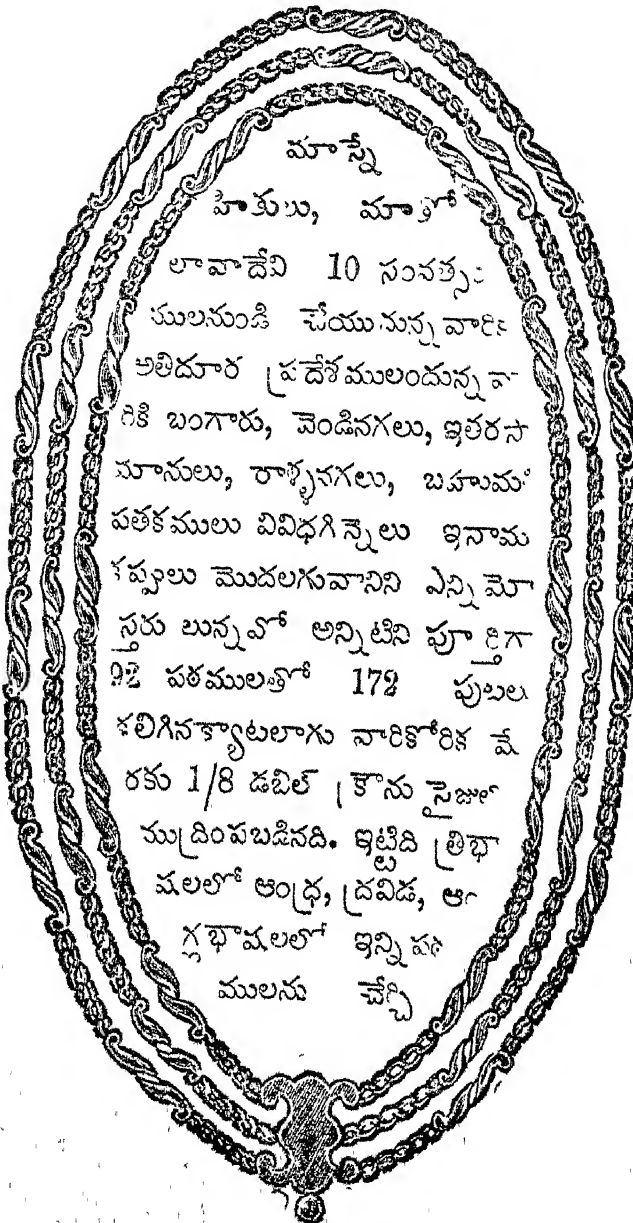 మాస్నే
హితులు, మాతో
లావాదేవి 10 సంవత్స
ములనుండి చేయుచున్న వారికి
అతిదూర ప్రదేశములందున్న వా
రికి బంగారు, వెండినగలు, ఇతరసా
మానులు, రాళ్ళనగలు, బహుమ
పతకములు వివిధగిన్నెలు ఇనామ
కప్పులు మొదలగువానిని ఎన్ని మో
స్తరు లున్నవో అన్నిటిని పూర్తిగా
92 పఠములతో 172 పుటలు
కలిగినక్యాటలాగు వారికోరిక మే
రకు 1/8 డబిల్ క్రౌను సైజులో
ముద్రింపబడినది. ఇట్టిది త్రిభా
షలలో ఆంధ్ర, ద్రవిడ, ఆం
గ్లభాషలలో ఇన్ని పఠ
ములను చేర్చి